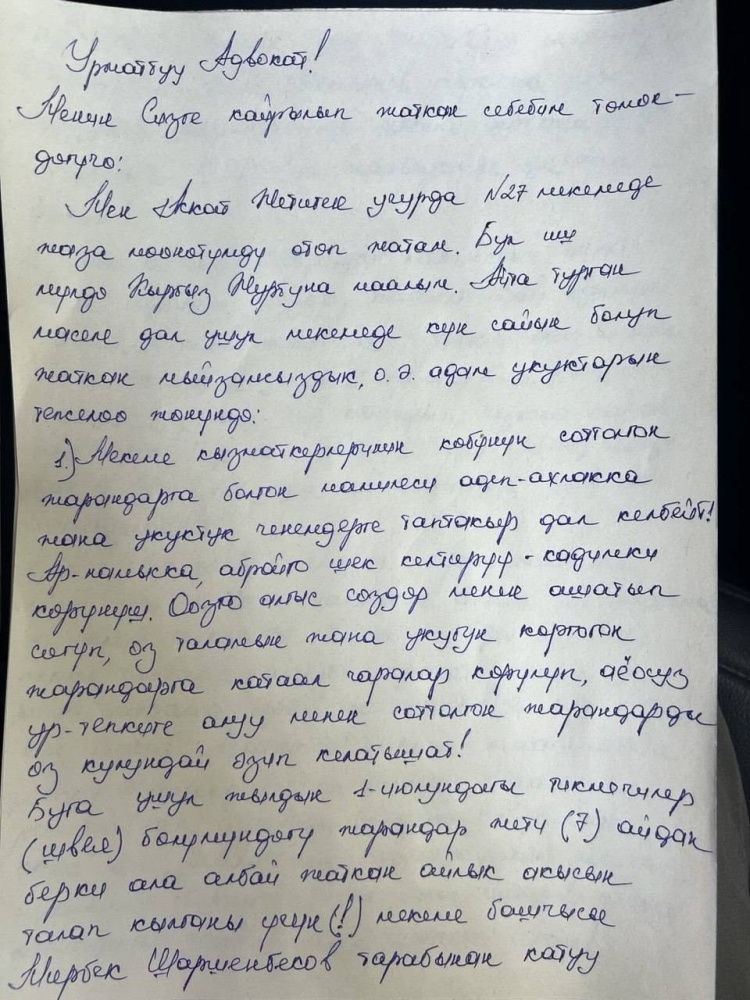 Урматтуу Адвокат!
Менин Сизге кайрылып жаткан себебим томон-
догучо:
Мен Аккат Жетитек учурда №27 мекемеде
жаза моонотумду отоп жатам. Бул иш
мулдо Кыргыз Журтуна маалым. Айта турган
маселе дал ушул мекемеде кун сайын болуп
жаткан мыйзамсыздык, о.э. адам укуктарын
тепселоо жонундо:
1.) Мекеме кызматкерлеринин кобунун соттолгон
жарандарга болгон мамилеси адеп-ахлакка
жана укуктук ченемдерге таптакыр дал келбейт!
Ар-намыска, абройго шек келтируу - кадимки
корунуш. Оозго алгыс создор менен ашатып
согуп, оз талабын жана укугун коргогон
жарандарга катаал чаралар корулуп, аёосуз
ур-тепкиге алуу менен соттолгон жарандарды
оз кулундай эзип келатышат!
Буга ушул жылдын 1-июлундагы тикмечилер
(швея) болумундогу жарандар жети (7) айдан
берки ала албай жаткан айлык акысын
талап кылганы учун (!) мекеме башчысы
Мирбек Шаршенбесов тарабынан катуу